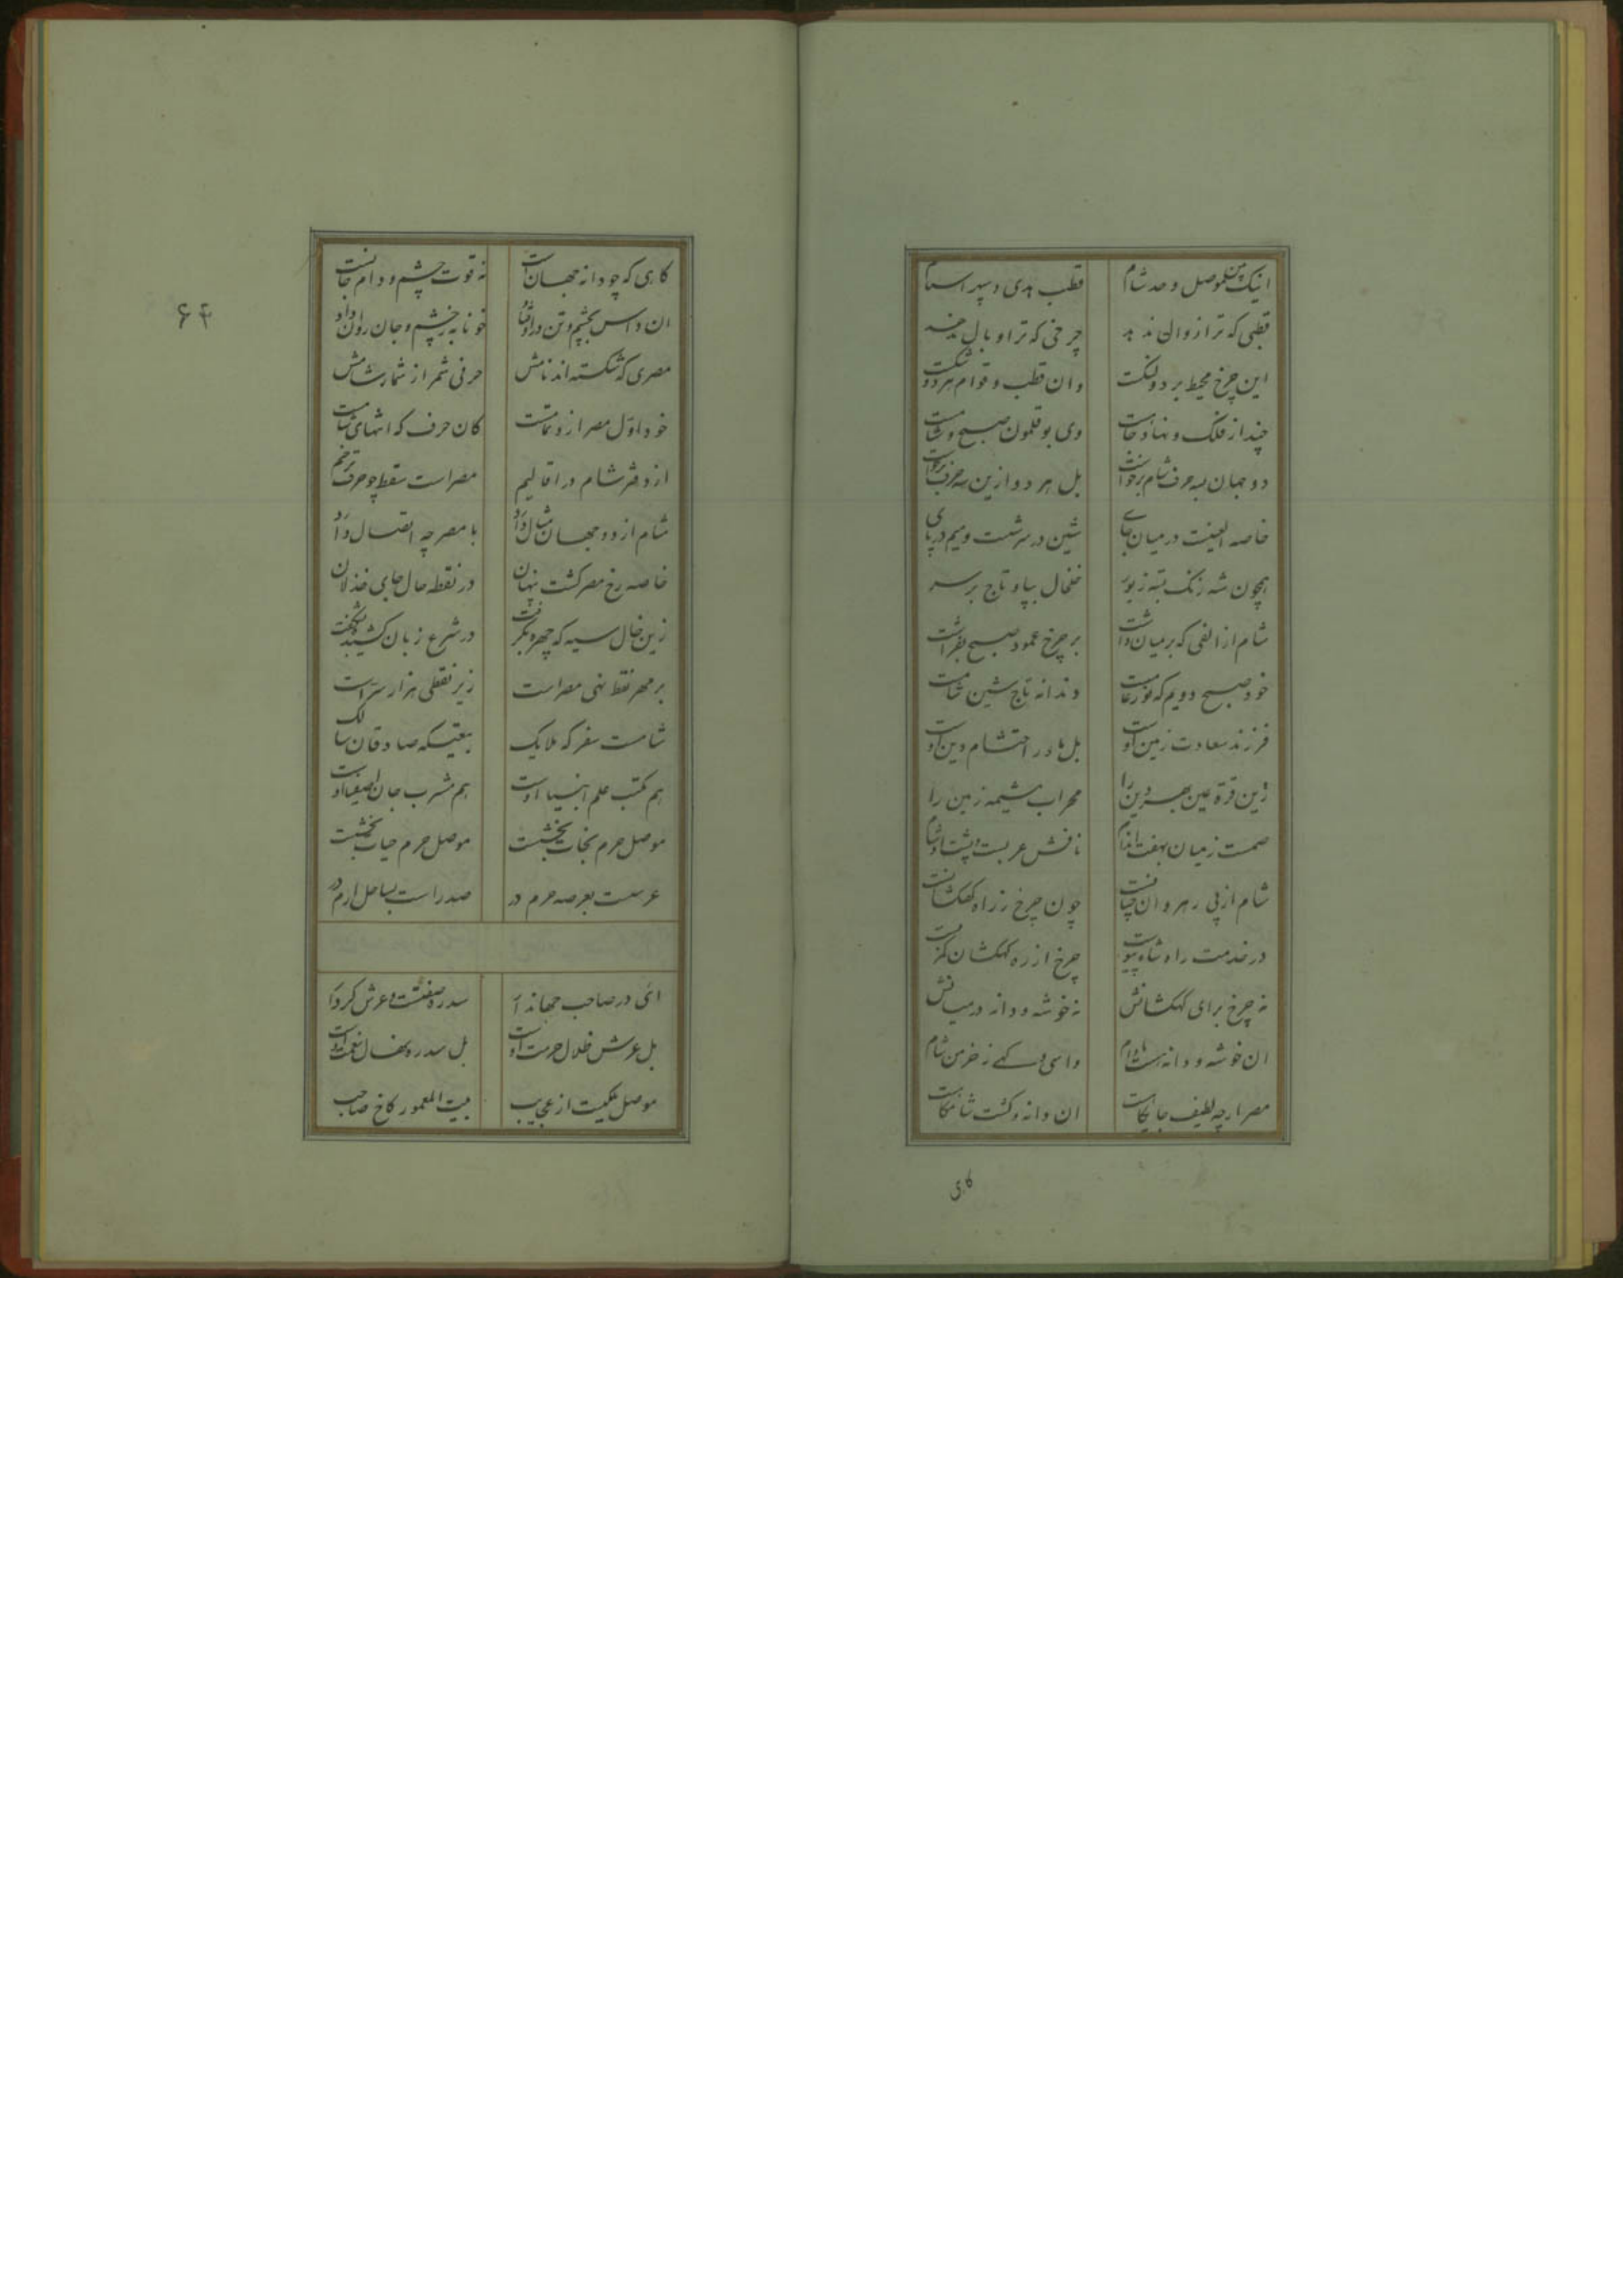 اینک موصل و حد شام قطب هدی و سپهر اسلام
قطبی که ترا زوال ندهد چرخی که ترا وبال ندهد
این چرخ محیط بر دو لکت وان قطب و قوام هر دو شکست
چند از فلک و نهاد خامت وی بوقلمون صبح و شامت
دو جهان بسه حرف شام برخواست بل هر دو ازین سه حرف برخواست
خاصه الفیست در میان جای شین در سرشست ومیم در پای
همچون شه زنگ بسته زیور خلخال بپا و تاج بر سر
شام از الفی که بر میان داشت بر چرخ عمود صبح بفراشت
خود صبح دویم که نور عامست دندانه تاج شین شامست
فرزند سعادت زمین اوست بل مادر احتشام دین اوست
زین قرة عین بهر دین را محراب مشیمه زمین را
هست ز میان هفت اندام نافش عربست و پشت او شام
شام از پی رهروان چنانست چون چرخ ز راه کهکشانست
در خدمت راه شاه پیوست چرخ از ره کهکشان کمر بست
نه چرخ برای کهکشانش نه خوشه و دانه در میانش
ان خوشه و دانه هست مادام داسی و کهی ز خرمن شام
مصر ارچه لطیف جایگاست ان دانه و کشت شام کاست
کاهی
۶۴
کاهی که چو دانه جهان است نه قوت چشم و دام جانست
ان داس بچشم و تن در افتاد خونابه ز چشم و جان روان داد
مصری که شکسته اند نامش حرفی شمر از شمار شامش
خود اول مصر ازو تمامت کان حرف که انتهای شامت
از دفتر شام در اقالیم مصر است سقط چو حرف ترخیم
شام از دو جهان مثال دارد با مصر چه اتصال دارد
خاصه رخ مصر کشت پنهان در نقطه حال جای خذلان
زین خال سیه که چهره بگرفت در شرع زبان کشید و بگفت
بر مهر نقط نهی مصر است زیر نقطی هزار سر است
شامست سفر که ملایک بیتیسکه صادقان سالک
هم مکتب علم انبیا اوست هم مشرب جان اصفیا اوست
موصل حرم نجات بخشست موصل حرم حیات بخشست
عرست بعرصه حرم در صدر است بساحل ارم در
ائی در صاحب جهاندار سدره صفتست و عرش کردار
بل عرش ظلال حرمت اوست بل سدره نهال نعمت اوست
موصل فلکیست از عجایب بیت المعمور کاخ صاحب